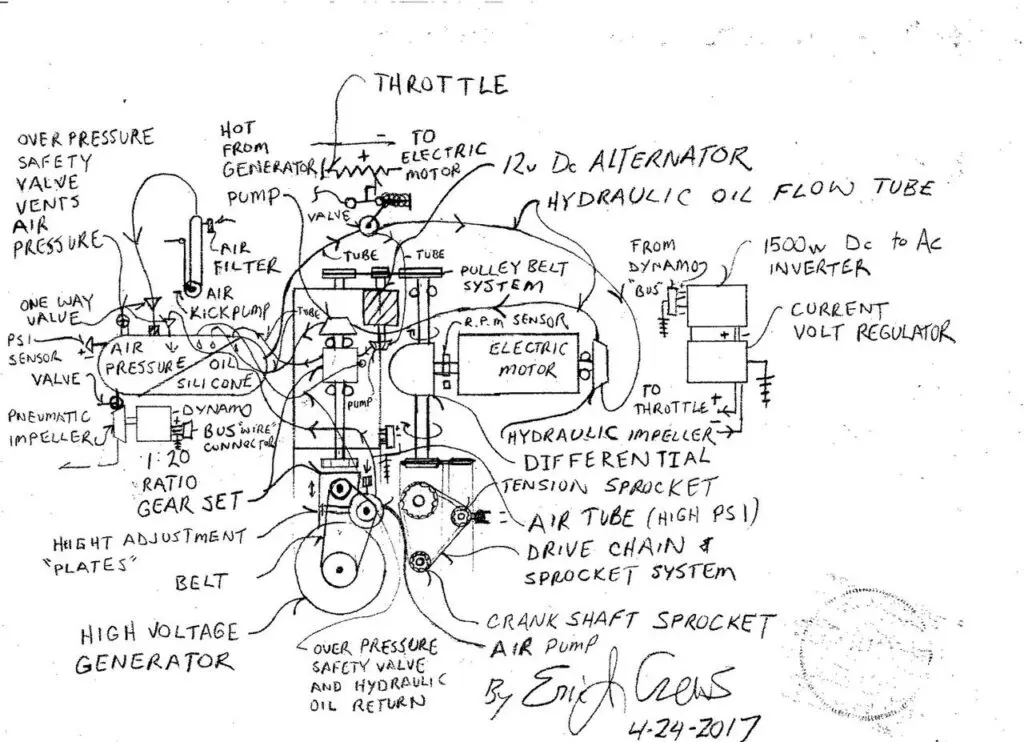 THROTTLE
OVER PRESSURE
SAFETY
VALVE
VENTS
AIR
PRESSURE
HOT
FROM
GENERATOR
- TO
+ ELECTRIC
MOTOR
12v Dc ALTERNATOR
PUMP
VALVE
HYDRAULIC OIL FLOW TUBE
AIR
FILTER
TUBE
TUBE
PULLEY BELT
SYSTEM
FROM
DYNAMO
"BUS"
1500w Dc to Ac
INVERTER
ONE WAY
VALVE
AIR
KICKPUMP
TUBE
R.P.M SENSOR
CURRENT
VOLT REGULATOR
PSI
SENSOR
+ -
AIR
PRESSURE
OIL
SILICONE
ELECTRIC
MOTOR
VALVE
PUMP
TO
THROTTLE + -
PNEUMATIC
IMPELLER
DYNAMO
BUS "WIRE"
CONNECTOR
HYDRAULIC IMPELLER
DIFFERENTIAL
1:20
RATIO
GEAR SET
TENSION SPROCKET
AIR TUBE (HIGH PSI)
HIGHT ADJUSTMENT
"PLATES"
DRIVE CHAIN &
SPROCKET SYSTEM
BELT
CRANK SHAFT SPROCKET
HIGH VOLTAGE
GENERATOR
AIR PUMP
OVER PRESSURE
SAFETY VALVE
AND HYDRAULIC
OIL RETURN
By Eric J Crews
4-24-2017